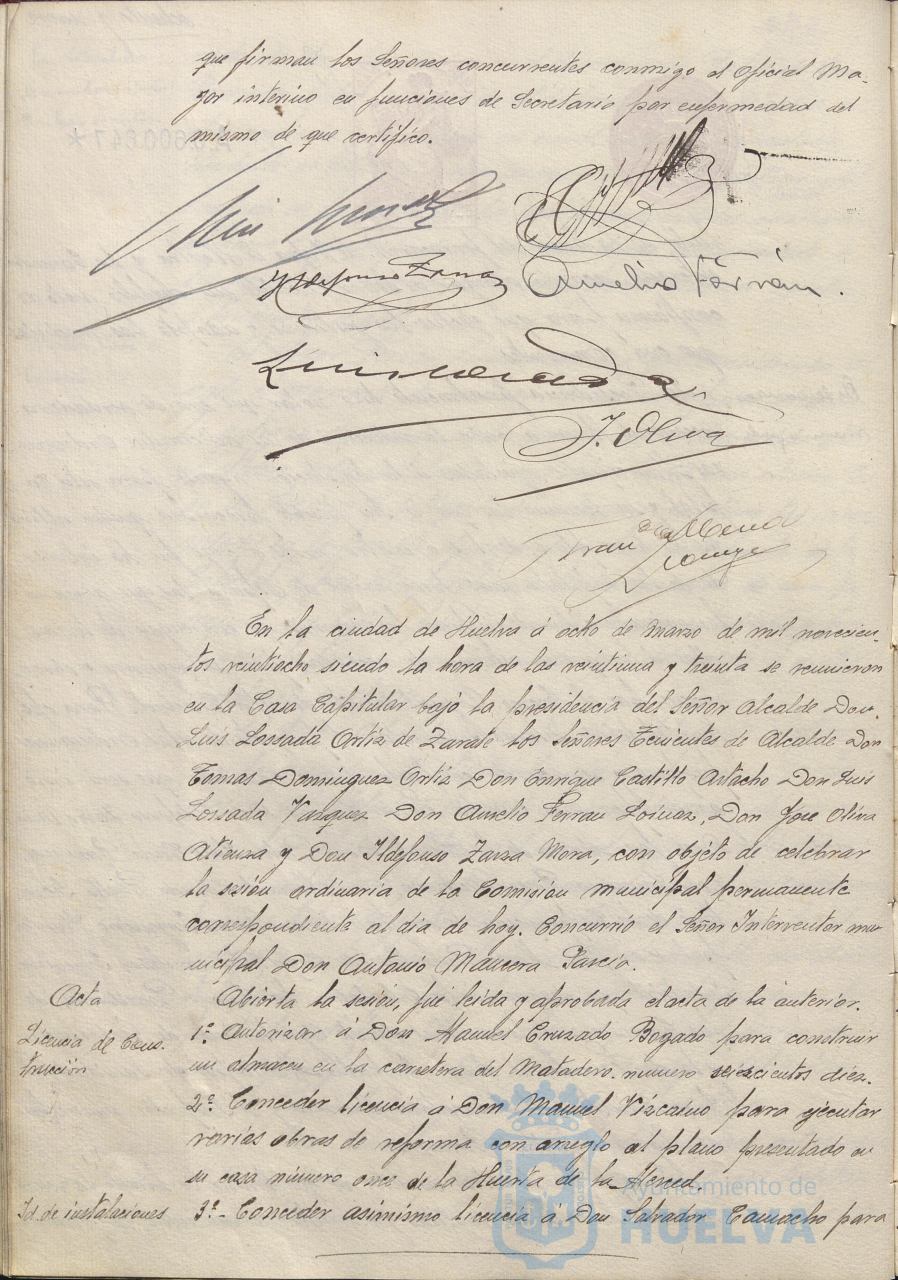 que firman los Señores concurrentes conmigo el Oficial Ma-
yor interino en funciones de Secretario por enfermedad del
mismo de que certifico.
Ildefonso Zarza
Aurelio Ferrán.
Luis Losada
J. Oliva
En la ciudad de Huelva á ocho de Marzo de mil novecien-
tos veintiocho siendo la hora de las veintiuna y treinta se reunieron
en la Casa Capitular bajo la presidencia del Señor Alcalde Don
Luis Lossada Ortiz de Zarate los Señores Tenientes de Alcalde Don
Tomas Dominguez Ortiz Don Enrique Castillo Astacho Don Luis
Lossada Vazquez Don Aurelio Ferran Don Jose Oliva
Atienza y Don Ildefonso Zarza Mora, con objeto de celebrar
la sesión ordinaria de la Comisión municipal permanente
correspondiente al dia de hoy. Concurrió el Señor Interventor mu-
nicipal Don Antonio Mancera Garcia.
Acta
Abierta la sesión, fué leida y aprobada el acta de la anterior.
Licencia de Cons-
trucción
1º Autorizar á Don Manuel Cruzado Bogado para construir
un almacen en la carretera del Matadero numero seiscientos diez.
2º Conceder licencia á Don Manuel Vizcaino para ejecutar
varias obras de reforma con arreglo al plano presentado en
su casa número once de la Huerta de la Merced.
Id. de instalaciones
3º - Conceder asimismo licencia á Don Salvador Camacho para
Ayuntamiento de
HUELVA